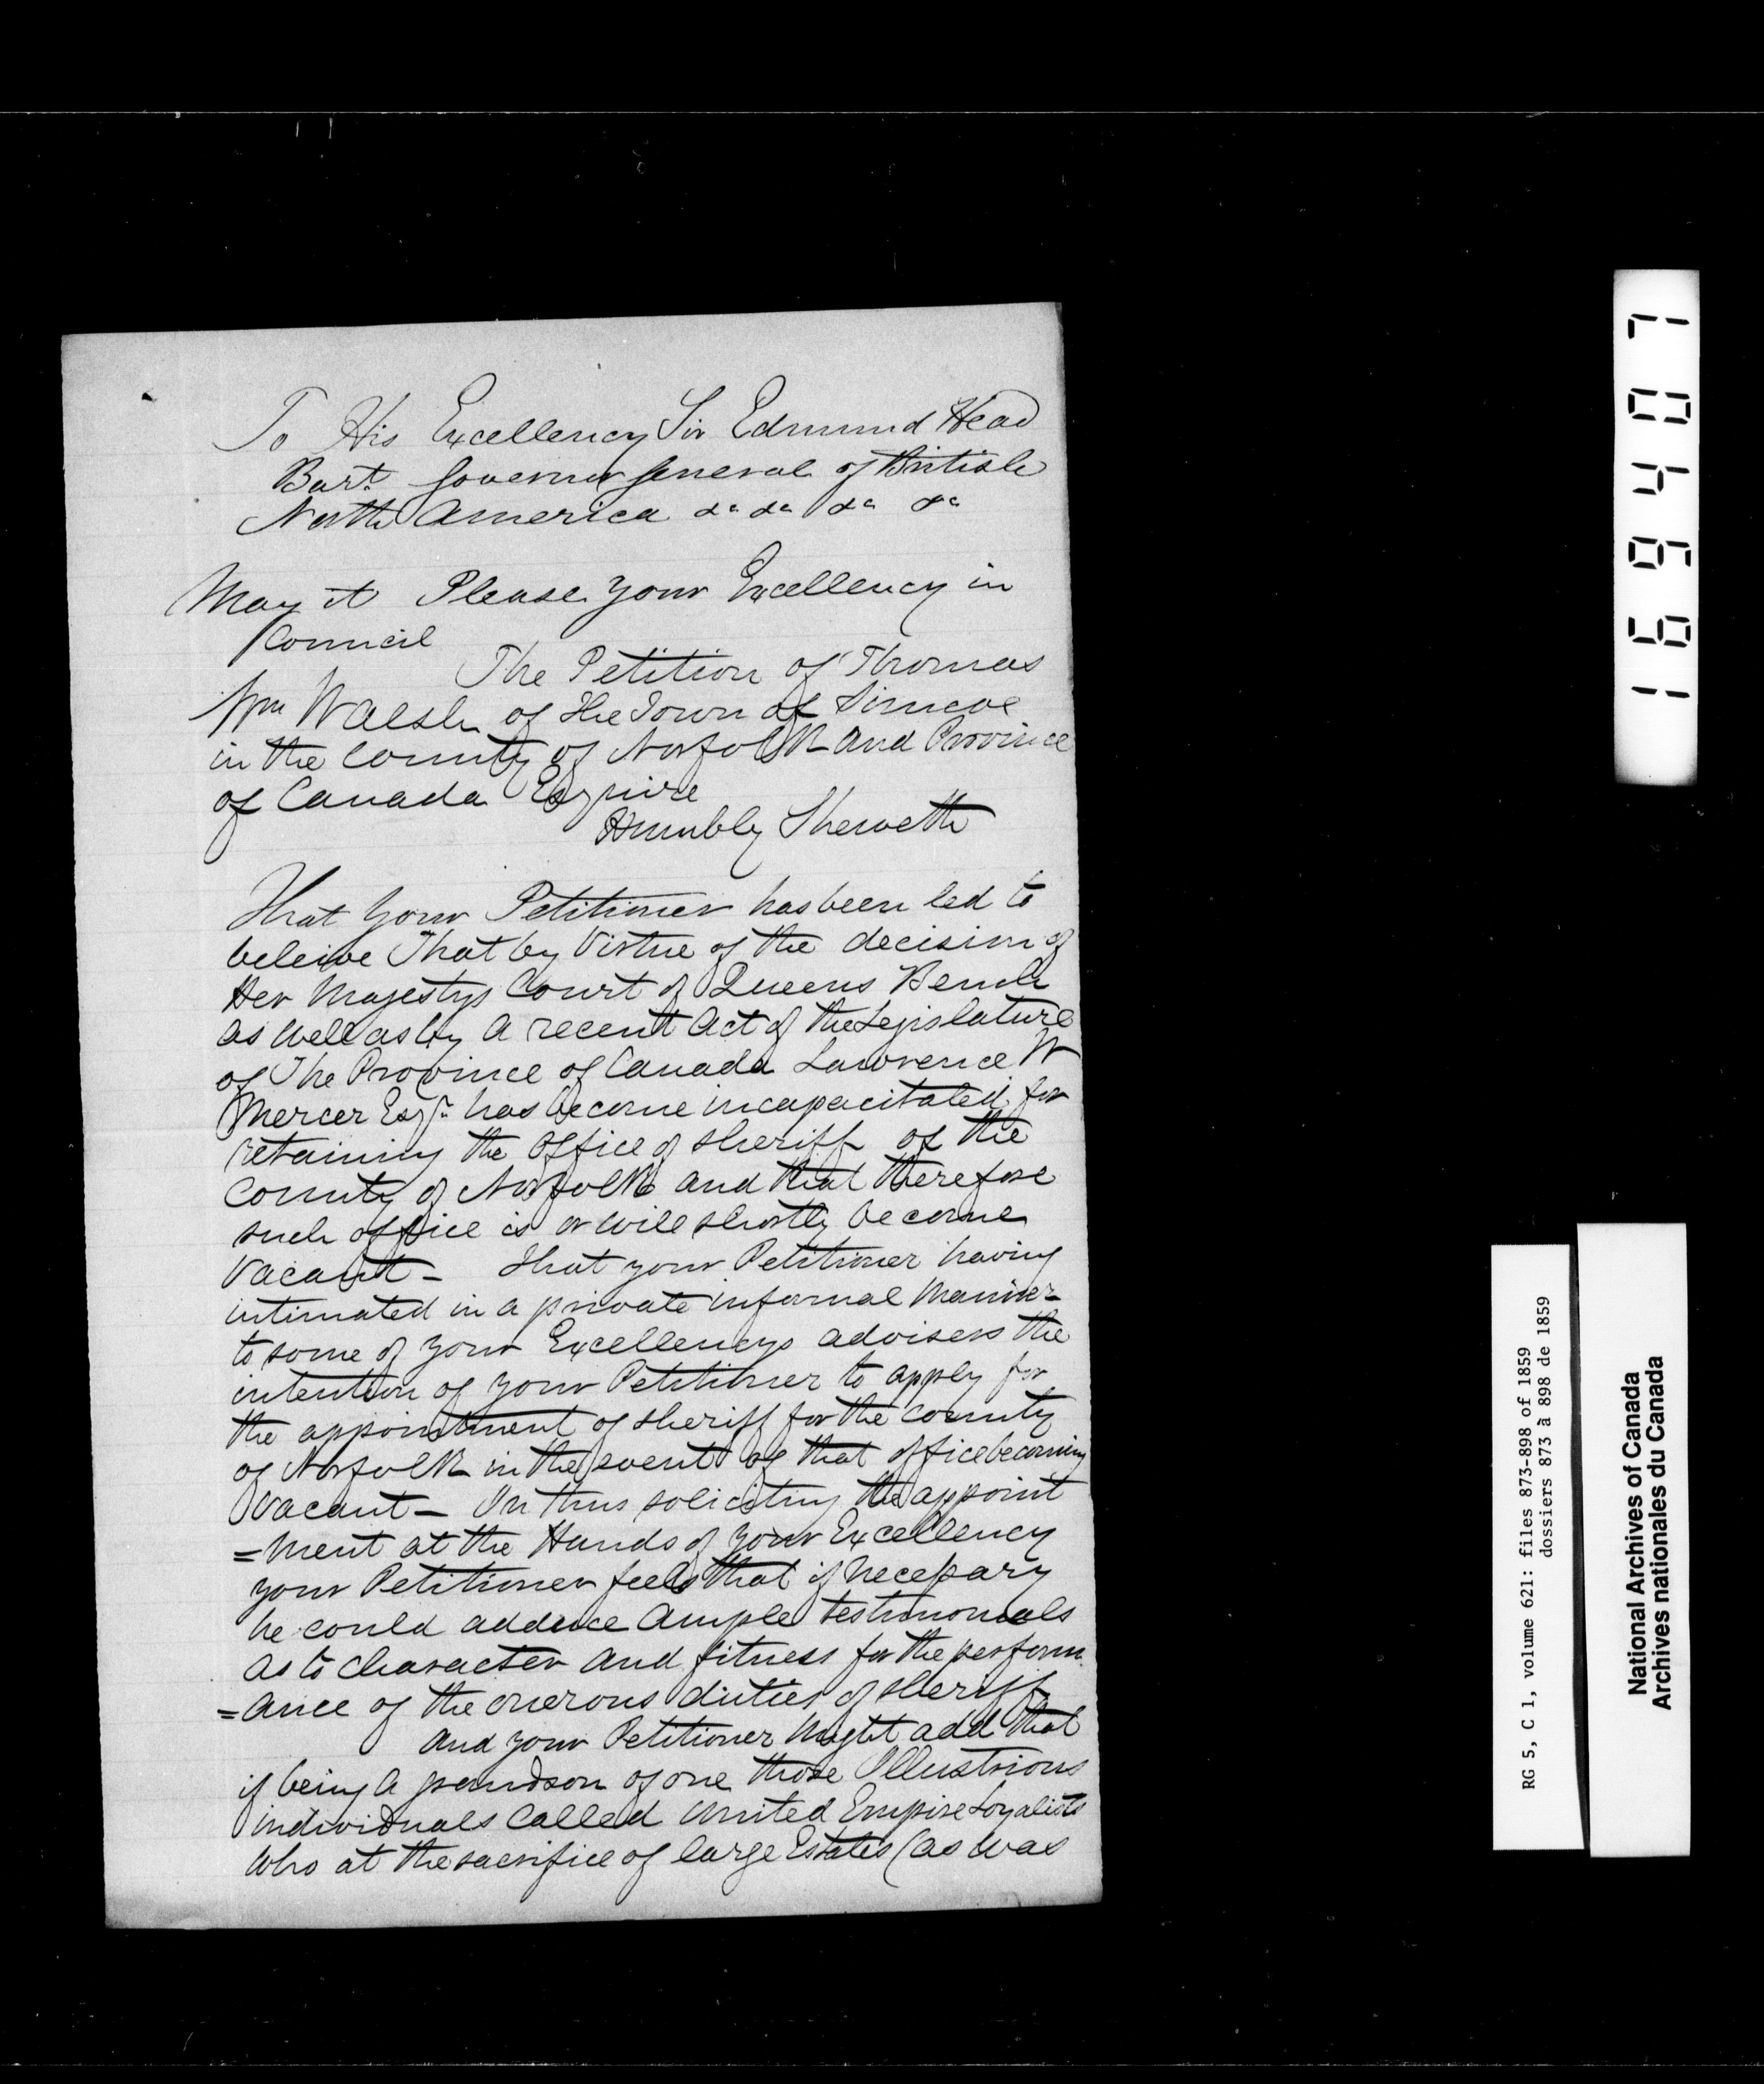 To His Excellency Sir Edmund Head
Bart. Governor General of British
North America &c &c &c &c
May it Please your Excellency in
Council
The Petition of Thomas
Wm Walsh of the Town of Simcoe
in the County of Norfolk and Province
of Canada Esquire
Humbly Sheweth
That your Petitioner has been led to
beleive That by Virtue of the decision of
Her Majestys Court of Queens Bench
as well as by a recent Act of the Legislature
of The Province of Canada Lawrence W
Mercer Esqr. has become incapacitated for
retaining the office of sheriff of the
County of Norfolk and that therefore
such office is or will shortly become
Vacant - That your Petitioner having
intimated in a private informal manner
to some of your Excellencys advisers the
intention of your Petitioner to apply for
the appointment of sheriff for the county
of Norfolk in the event of that office becoming
Vacant - In thus soliciting the appoint
=ment at the Hands of your Excellency
your Petitioner feels that if necessary
he could adduce ample testimonials
as to character and fitness for the perform
=ance of the onerous duties of sheriff
And your Petitioner might add that
if being a grandson of one those Illustrious
individuals called United Empire Loyalists
Who at the sacrifice of large Estates (as was
169407
RG 5, C 1, volume 621: files 873-898 of 1859
dossiers 873 à 898 de 1859
National Archives of Canada
Archives nationales du Canada